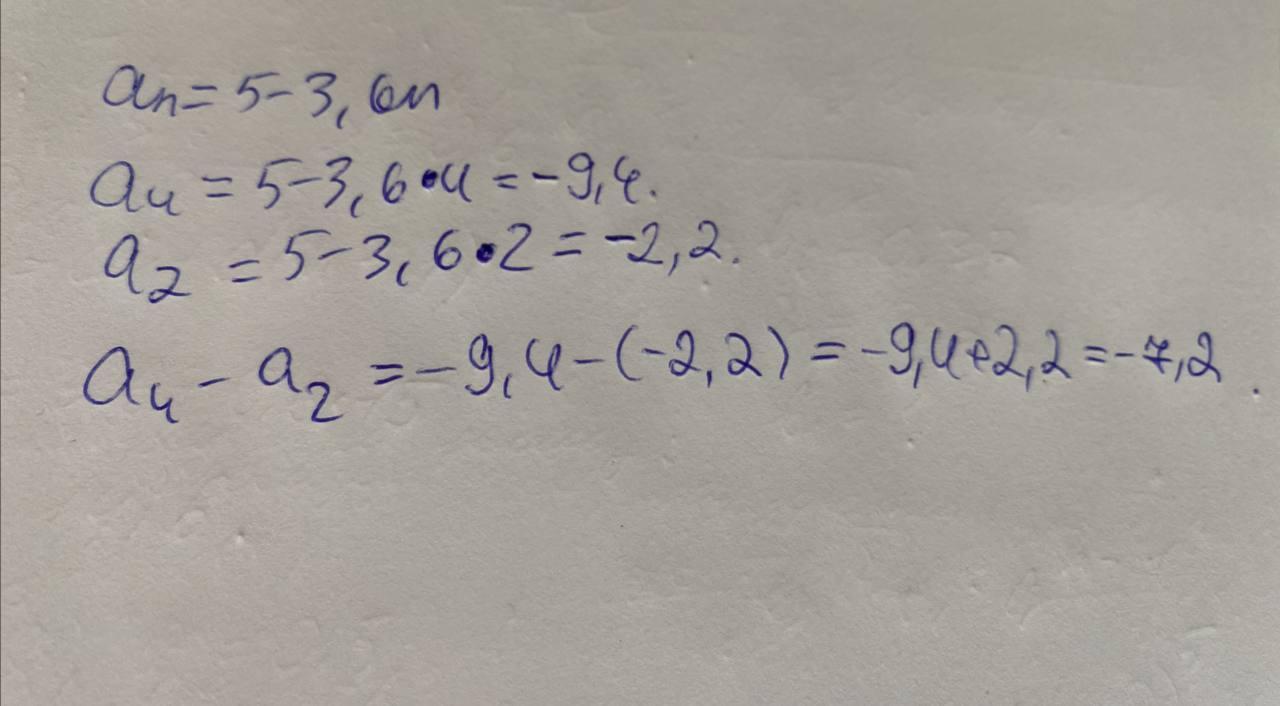 aₙ = 5 - 3,6n
a₄ = 5 - 3,6 • 4 = -9,4.
a₂ = 5 - 3,6 • 2 = -2,2.
a₄ - a₂ = -9,4 - (-2,2) = -9,4 + 2,2 = -7,2.